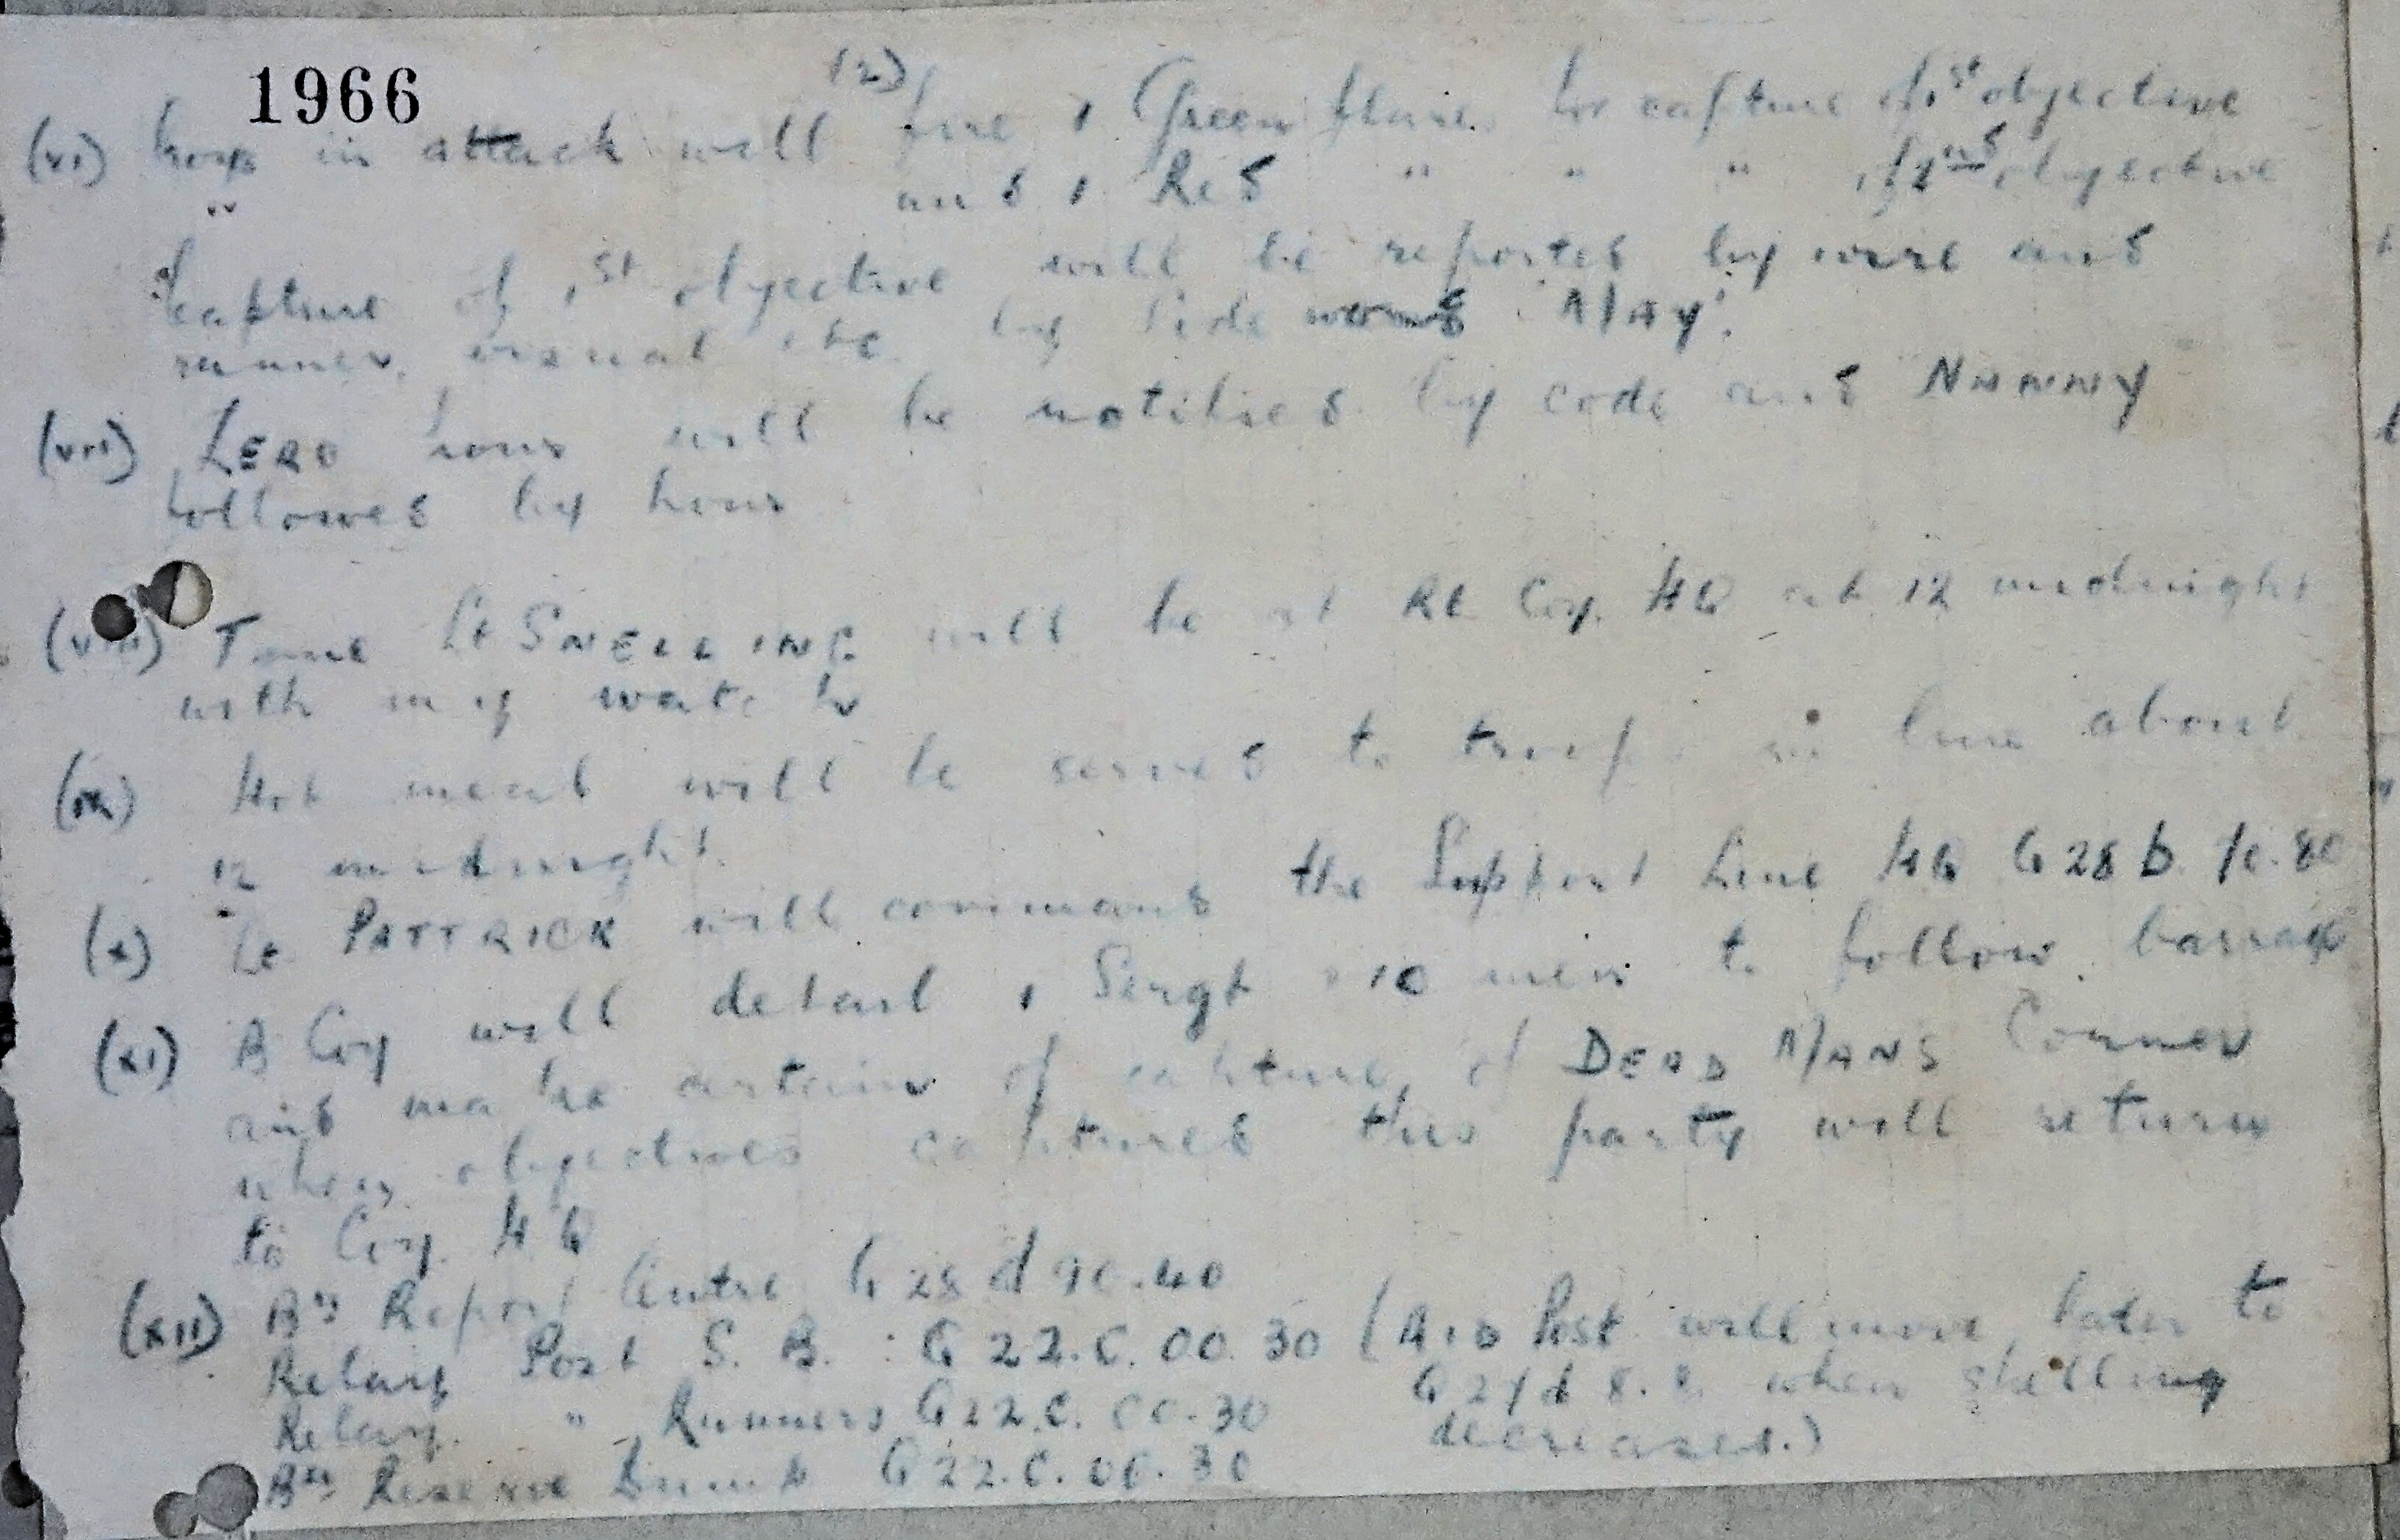 1966
(2)
(vi) Coys in attack will fire 1 Green flare for capture of 1st objective
" and 1 Red " " " of 2nd objective
Capture of 1st objective will be reported by wire and
runner, visual etc. by Code word 'MAY'.
(vii) ZERO hour will be notified by code and NANNY
followed by hour
(viii) Time Lt SNELLING will be at Rt Coy. HQ at 12 midnight
with my watch
(ix) Hot meal will be served to troops in line about
12 midnight.
(x) Lt PATTRICK will command the Support Line HQ G 28 b 70.80
(xi) B Coy will detail 1 Sergt 10 men to follow barrage
and make certain of capture of DEAD MANS Corner
when objectives captured this party will return
to Coy. HQ
(xii) Bn Report Centre G 28 d 90.40
Relay Post S. B. : G 22.C. 00.30 (Aid Post will move later to
Relay " Runners G 22.C. 00.30 G 27 d 8.8. when shelling
decreases.)
Bn Reserve Dump G 22.C. 00.30